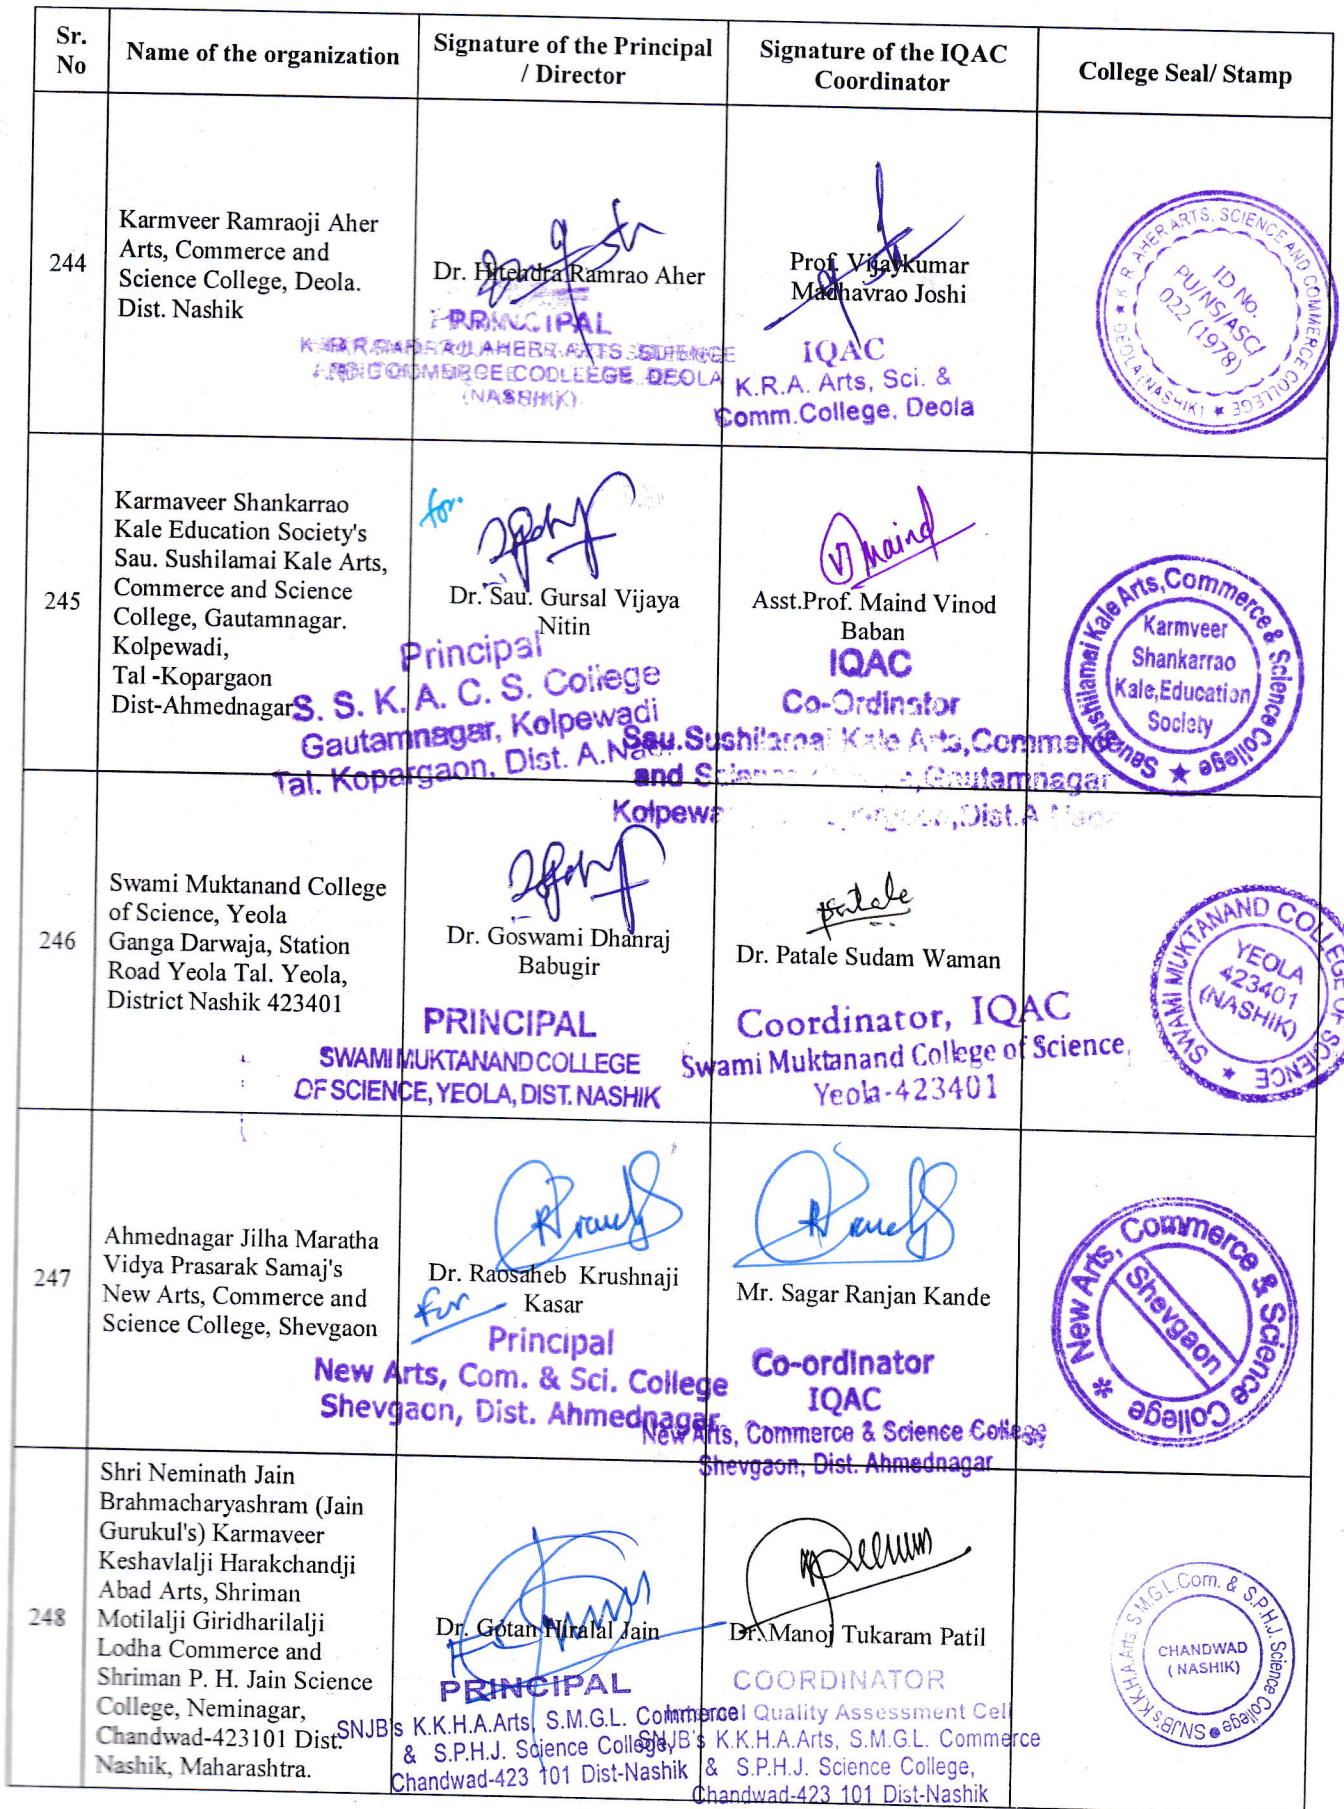 Sr.
No
Name of the organization
Signature of the Principal
/ Director
Signature of the IQAC
Coordinator
College Seal/ Stamp
244
Karmveer Ramraoji Aher
Arts, Commerce and
Science College, Deola.
Dist. Nashik
Dr. Hitendra Ramrao Aher
PRINCIPAL
ARTS SCIENCE
COMMERCE COLLEGE DEOLA
(NASHIK)
Prof. Vijaykumar
Madhavrao Joshi
IQAC
K.R.A. Arts, Sci. &
Comm.College, Deola
K. R. AHER ARTS, SCIENCE AND COMMERCE COLLEGE
DEOLA (NASHIK)
ID No.
PU/NS/ASC/
022 (1978)
245
Karmaveer Shankarrao
Kale Education Society's
Sau. Sushilamai Kale Arts,
Commerce and Science
College, Gautamnagar.
Kolpewadi,
Tal -Kopargaon
Dist-Ahmednagar
for.
Dr. Sau. Gursal Vijaya
Nitin
Principal
S. S. K. A. C. S. College
Gautamnagar, Kolpewadi
Tal. Kopargaon, Dist. A.Nagar
Maind
Asst.Prof. Maind Vinod
Baban
IQAC
Co-Ordinator
Sau.Sushilamai Kale Arts,Commerce
and Science Gautamnagar
Dist.A
Sau Sushilamai Kale Arts,Commerce & Science College
Karmveer
Shankarrao
Kale,Education
Society
246
Swami Muktanand College
of Science, Yeola
Ganga Darwaja, Station
Road Yeola Tal. Yeola,
District Nashik 423401
Dr. Goswami Dhanraj
Babugir
PRINCIPAL
SWAMI MUKTANAND COLLEGE
OF SCIENCE, YEOLA, DIST. NASHIK
Patale
Dr. Patale Sudam Waman
Coordinator, IQAC
Swami Muktanand College of Science,
Yeola-423401
SWAMI MUKTANAND COLLEGE OF SCIENCE
YEOLA
423401
(NASHIK)
247
Ahmednagar Jilha Maratha
Vidya Prasarak Samaj's
New Arts, Commerce and
Science College, Shevgaon
Dr. Raosaheb Krushnaji
Kasar
For
Principal
New Arts, Com. & Sci. College
Shevgaon, Dist. Ahmednagar
Mr. Sagar Ranjan Kande
Co-ordinator
IQAC
New Arts, Commerce & Science College
Shevgaon, Dist. Ahmednagar
New Arts, Commerce & Science College
Shevgaon
248
Shri Neminath Jain
Brahmacharyashram (Jain
Gurukul's) Karmaveer
Keshavlalji Harakchandji
Abad Arts, Shriman
Motilalji Giridharilalji
Lodha Commerce and
Shriman P. H. Jain Science
College, Neminagar,
Chandwad-423101 Dist.
Nashik, Maharashtra.
Dr. Gotan Hiralal Jain
PRINCIPAL
SNJB's K.K.H.A.Arts, S.M.G.L. Commerce
& S.P.H.J. Science College,
Chandwad-423 101 Dist-Nashik
Dr. Manoj Tukaram Patil
COORDINATOR
Internal Quality Assessment Cell
SNJB's K.K.H.A.Arts, S.M.G.L. Commerce
& S.P.H.J. Science College,
Chandwad-423 101 Dist-Nashik
SNJB's K.K.H.A.Arts, S.M.G.L.Com. & S.P.H.J. Science College
CHANDWAD
( NASHIK)